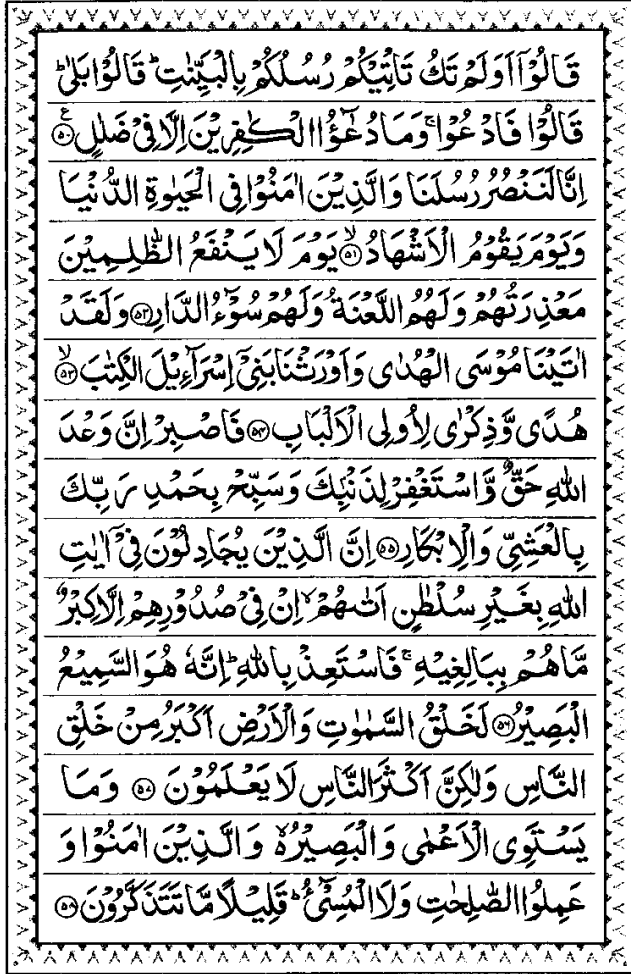 قَالُوْۤا اَوَلَمْ تَكُ تَاْتِیْكُمْ رُسُلُكُمْ بِالْبَیِّنٰتِ ؕ قَالُوْا بَلٰی ؕ
قَالُوْا فَادْعُوْا ۚ وَمَا دُعٰٓؤُا الْكٰفِرِیْنَ اِلَّا فِیْ ضَلٰلٍ ﴿۵۰﴾ ع
اِنَّا لَنَنْصُرُ رُسُلَنَا وَالَّذِیْنَ اٰمَنُوْا فِی الْحَیٰوةِ الدُّنْیَا
وَیَوْمَ یَقُوْمُ الْاَشْهَادُ ﴿۵۱﴾ ۙ یَوْمَ لَا یَنْفَعُ الظّٰلِمِیْنَ
مَعْذِرَتُهُمْ وَلَهُمُ اللَّعْنَةُ وَلَهُمْ سُوْٓءُ الدَّارِ ﴿۵۲﴾ وَلَقَدْ
اٰتَیْنَا مُوْسَی الْهُدٰی وَاَوْرَثْنَا بَنِیْۤ اِسْرَآءِیْلَ الْكِتٰبَ ﴿۵۳﴾ ۙ
هُدًی وَّذِكْرٰی لِاُولِی الْاَلْبَابِ ﴿۵۴﴾ فَاصْبِرْ اِنَّ وَعْدَ
اللّٰهِ حَقٌّ وَّاسْتَغْفِرْ لِذَنْۢبِكَ وَسَبِّحْ بِحَمْدِ رَبِّكَ
بِالْعَشِیِّ وَالْاِبْكَارِ ﴿۵۵﴾ اِنَّ الَّذِیْنَ یُجَادِلُوْنَ فِیْۤ اٰیٰتِ
اللّٰهِ بِغَیْرِ سُلْطٰنٍ اَتٰىهُمْ ۙ اِنْ فِیْ صُدُوْرِهِمْ اِلَّا كِبْرٌ
مَّا هُمْ بِبَالِغِیْهِ ۚ فَاسْتَعِذْ بِاللّٰهِ ؕ اِنَّهٗ هُوَ السَّمِیْعُ
الْبَصِیْرُ ﴿۵۶﴾ لَخَلْقُ السَّمٰوٰتِ وَالْاَرْضِ اَكْبَرُ مِنْ خَلْقِ
النَّاسِ وَلٰكِنَّ اَكْثَرَ النَّاسِ لَا یَعْلَمُوْنَ ﴿۵۷﴾ وَمَا
یَسْتَوِی الْاَعْمٰی وَالْبَصِیْرُ ۙ۬ وَالَّذِیْنَ اٰمَنُوْا وَ
عَمِلُوا الصّٰلِحٰتِ وَلَا الْمُسِیْٓءُ ؕ قَلِیْلًا مَّا تَتَذَكَّرُوْنَ ﴿۵۸﴾